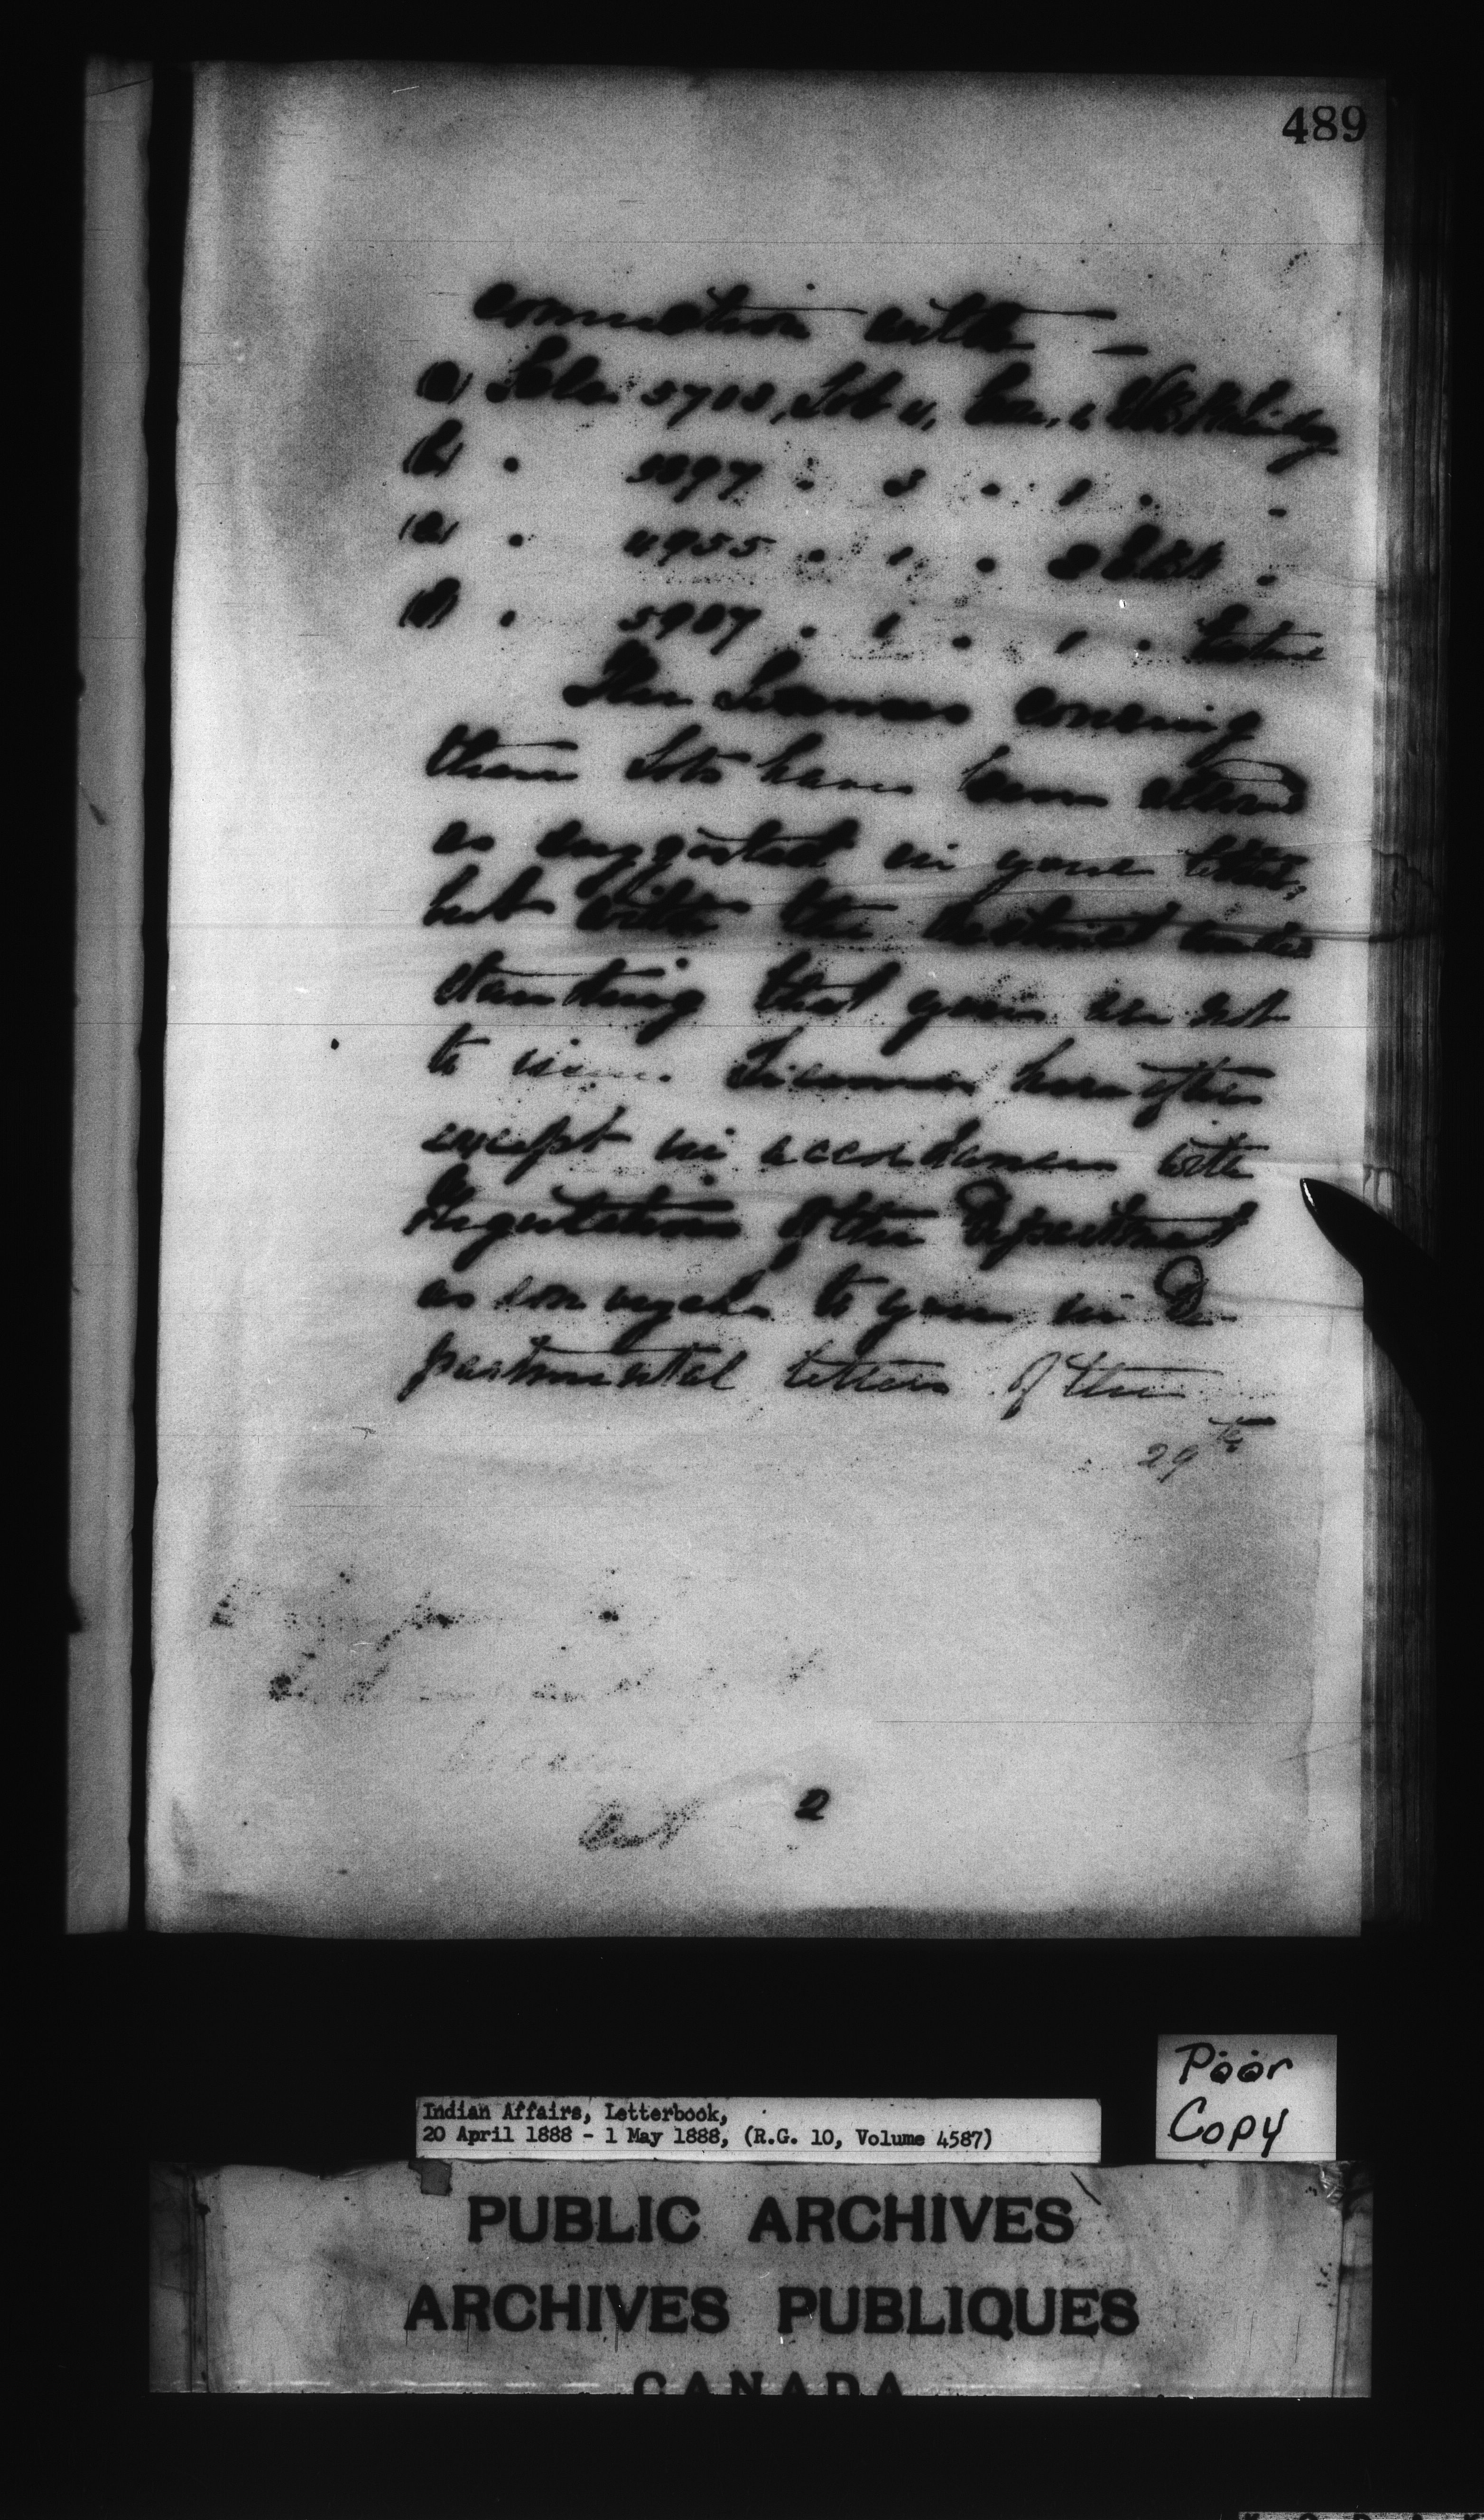 489
connection with —
(a) Sale 5708, Lot 4, Con. 6 W.B.R. Lindsay
(b) " 3897 " 3 " 1 " "
(c) " 4955 " 1 " 2 E.B.R. "
(d) " 5987 " 1 " 1 " Eastnor
The Licenses covering
these Lots have been altered
as suggested in your letter,
but with the distinct under
standing that you are not
to issue Licenses hereafter
except in accordance with
Regulations of the Department
as conveyed to you in De
partmental letters of the
29th
2
Poor
Copy
Indian Affairs, Letterbook,
20 April 1888 - 1 May 1888, (R.G. 10, Volume 4587)
PUBLIC ARCHIVES
ARCHIVES PUBLIQUES
CANADA